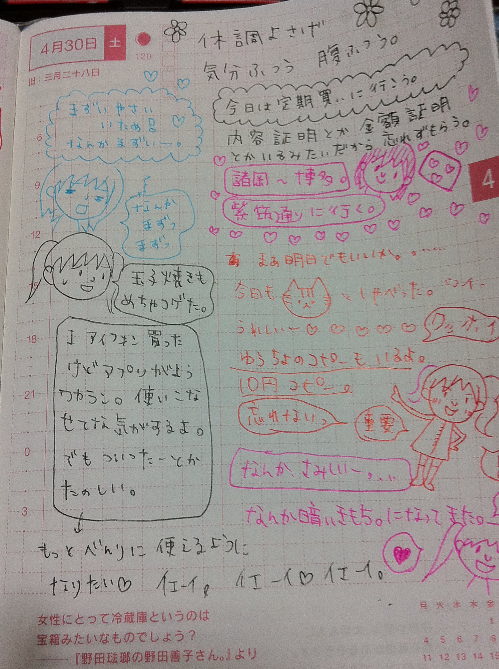 4月30日 土
120
旧 三月二十八日
体調よさげ
気分ふつう 腹ふつう。
今日は定期買いに行こう。
内容証明とか 金額証明
とかいるみたいだから忘れずもらう。
諸岡〜博多。
筑紫通りに行く。
4
まずいやさい
いため
なんかまずいー。
なんか
まずっ
まずっ
玉子焼きも
めちゃコゲた。
アイフォン買った
けどアプリがよう
ワカラン。使いこな
せてな気がするよ。
でもついったーとか
たのしい。
もっとべんりに使えるように
なりたい♡ イエーイ。イエーイ♡イエーイ。
まぁ明日でもいいか。……
今日も としゃべった。
うれしいー♡ ♡ ♡ ♡ ♡
ゆうちょのコピーもいるよ。
10円コピー。
忘れない。
重要
なんか さみしいー。…
なんか暗いきもちになってきた。
6
9
12
18
21
0
3
女性にとって冷蔵庫というのは
宝箱みたいなものでしょう?
──『野田琺瑯の野田善子さん。』より
日 月 火 水 木 金
1
4 5 6 7 8
11 12 13 14 15